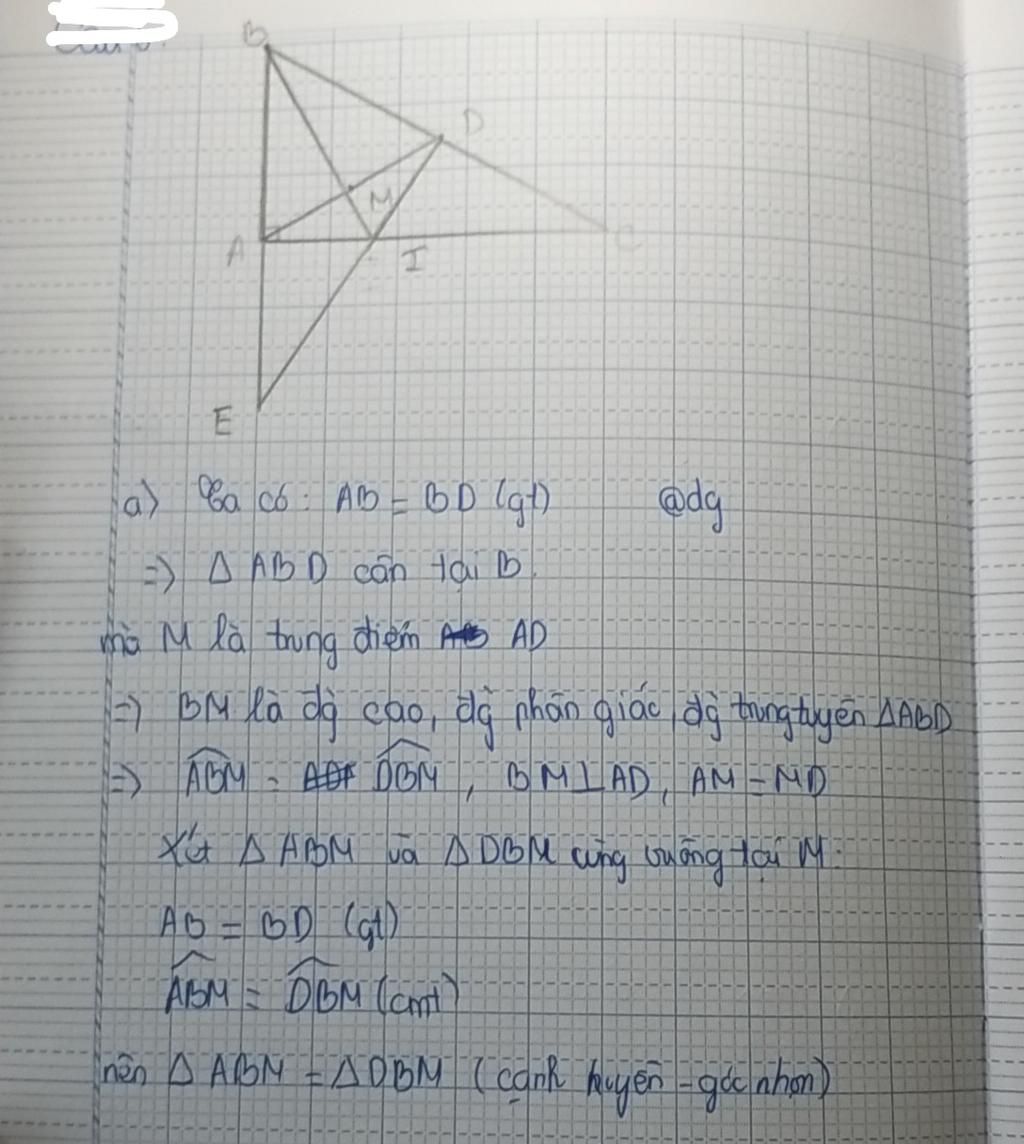 B
D
M
A
I
C
E
a) Ta có: AB = BD (gt) @dg
=> Δ ABD cân tại B.
mà M là trung điểm AD
=> BM là đg cao, đg phân giác, đg trung tuyến ΔABD
=> ABM = DBM, BM⊥AD, AM = MD
Xét Δ ABM và Δ DBM cùng vuông tại M:
AB = BD (gt)
ABM = DBM (cmt)
nên Δ ABM = Δ DBM (cạnh huyền - góc nhọn)